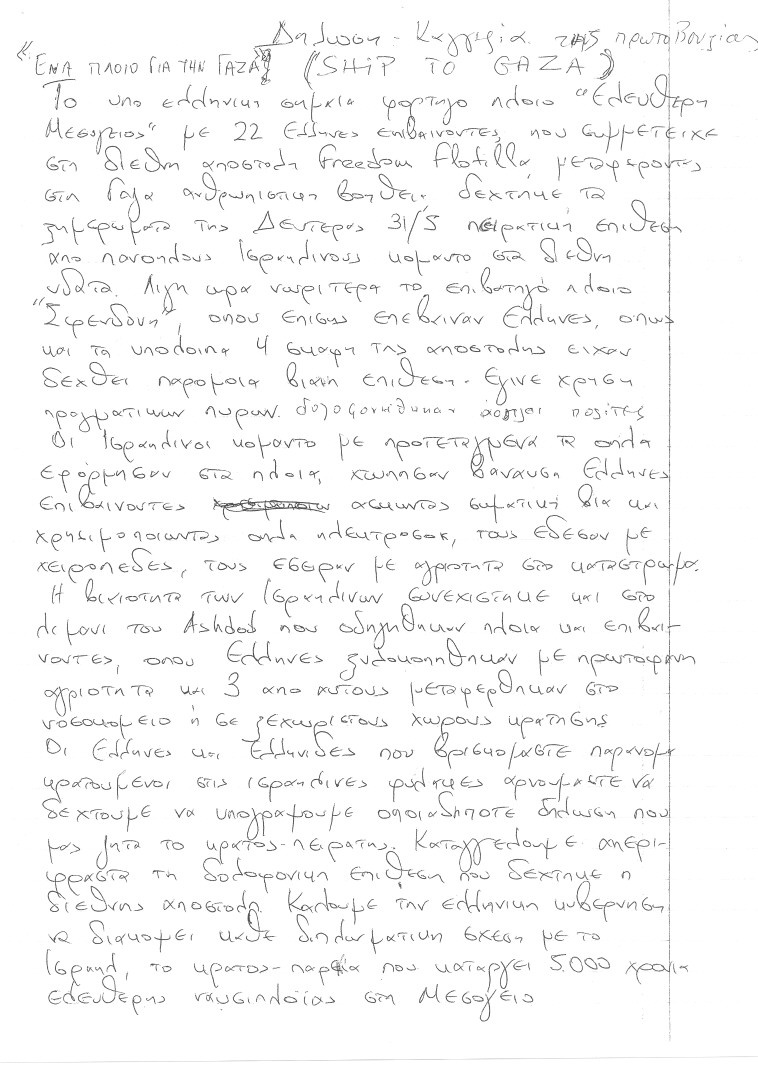 Δηλωση - Καγγελία της πρωτοβουλίας
"ΕΝΑ ΠΛΟΙΟ ΓΙΑ ΤΗΝ ΓΑΖΑ" (SHIP TO GAZA)
Το υπο ελληνικη σημαια φορτηγο πλοιο "Ελευθερη
Μεσογειος" με 22 Ελληνες επιβαινοντες, που συμμετειχε
στη διεθνη αποστολη Freedom Flotilla μεταφεροντας
στη Γαζα ανθρωπιστικη βοηθεια, δεχτηκε τα
ξημερωματα της Δευτερας 31/5 πειρατικη επιθεση
απο πανοπλους Ισραηλινους κομαντο στα διεθνη
υδατα. Λιγη ωρα νωριτερα το επιβατηγό πλοιο
"Σφενδονη", οπου επισης επεβαιναν Ελληνες, οπως
και τα υπολοιπα 4 σκαφη της αποστολης ειχαν
δεχθει παρομοια βιαιη επιθεση. Εγινε χρηση
πραγματικων πυρων. δολοφονήθηκαν άοπλοι πολίτες
Οι Ισραηλινοι κομαντο με προτεταγμενα τα οπλα
εφόρμησαν στα πλοια, χτυπησαν βαναυσα Ελληνες
επιβαινοντες ασκωντας σωματικη βια και
χρησιμοποιωντας οπλα ηλεκτροσοκ, τους εδεσαν με
χειροπεδες, τους εσεραν με αγριοτητα στο καταστρωμα.
Η βιαιοτητα των Ισραηλινων συνεχιστηκε και στο
λιμανι του Ashdod που οδηγηθηκαν πλοια και επιβαι-
νοντες, οπου Ελληνες ξυλοκοπηθηκαν με πρωτοφανη
αγριοτητα και 3 απο αυτους μεταφερθηκαν στο
νοσοκομειο ή σε ξεχωριστους χωρους κρατησης
Οι Ελληνες και Ελληνιδες που βρισκομαστε παρανομα
κρατουμενοι στις ισραηλινες φυλακες αρνουμαστε να
δεχτουμε να υπογραψουμε οποιαδηποτε δηλωση που
μας ζητα το κρατος-πειρατης. Καταγγελουμε απερι-
φραστα τη δολοφονικη επιθεση που δεχτηκε η
διεθνης αποστολη. Καλουμε την ελληνικη κυβερνηση
να διακοψει καθε διπλωματικη σχεση με το
Ισραηλ, το κρατος-παρια που καταργει 5.000 χρονια
ελευθερης ναυσιπλοϊας στη Μεσογειο